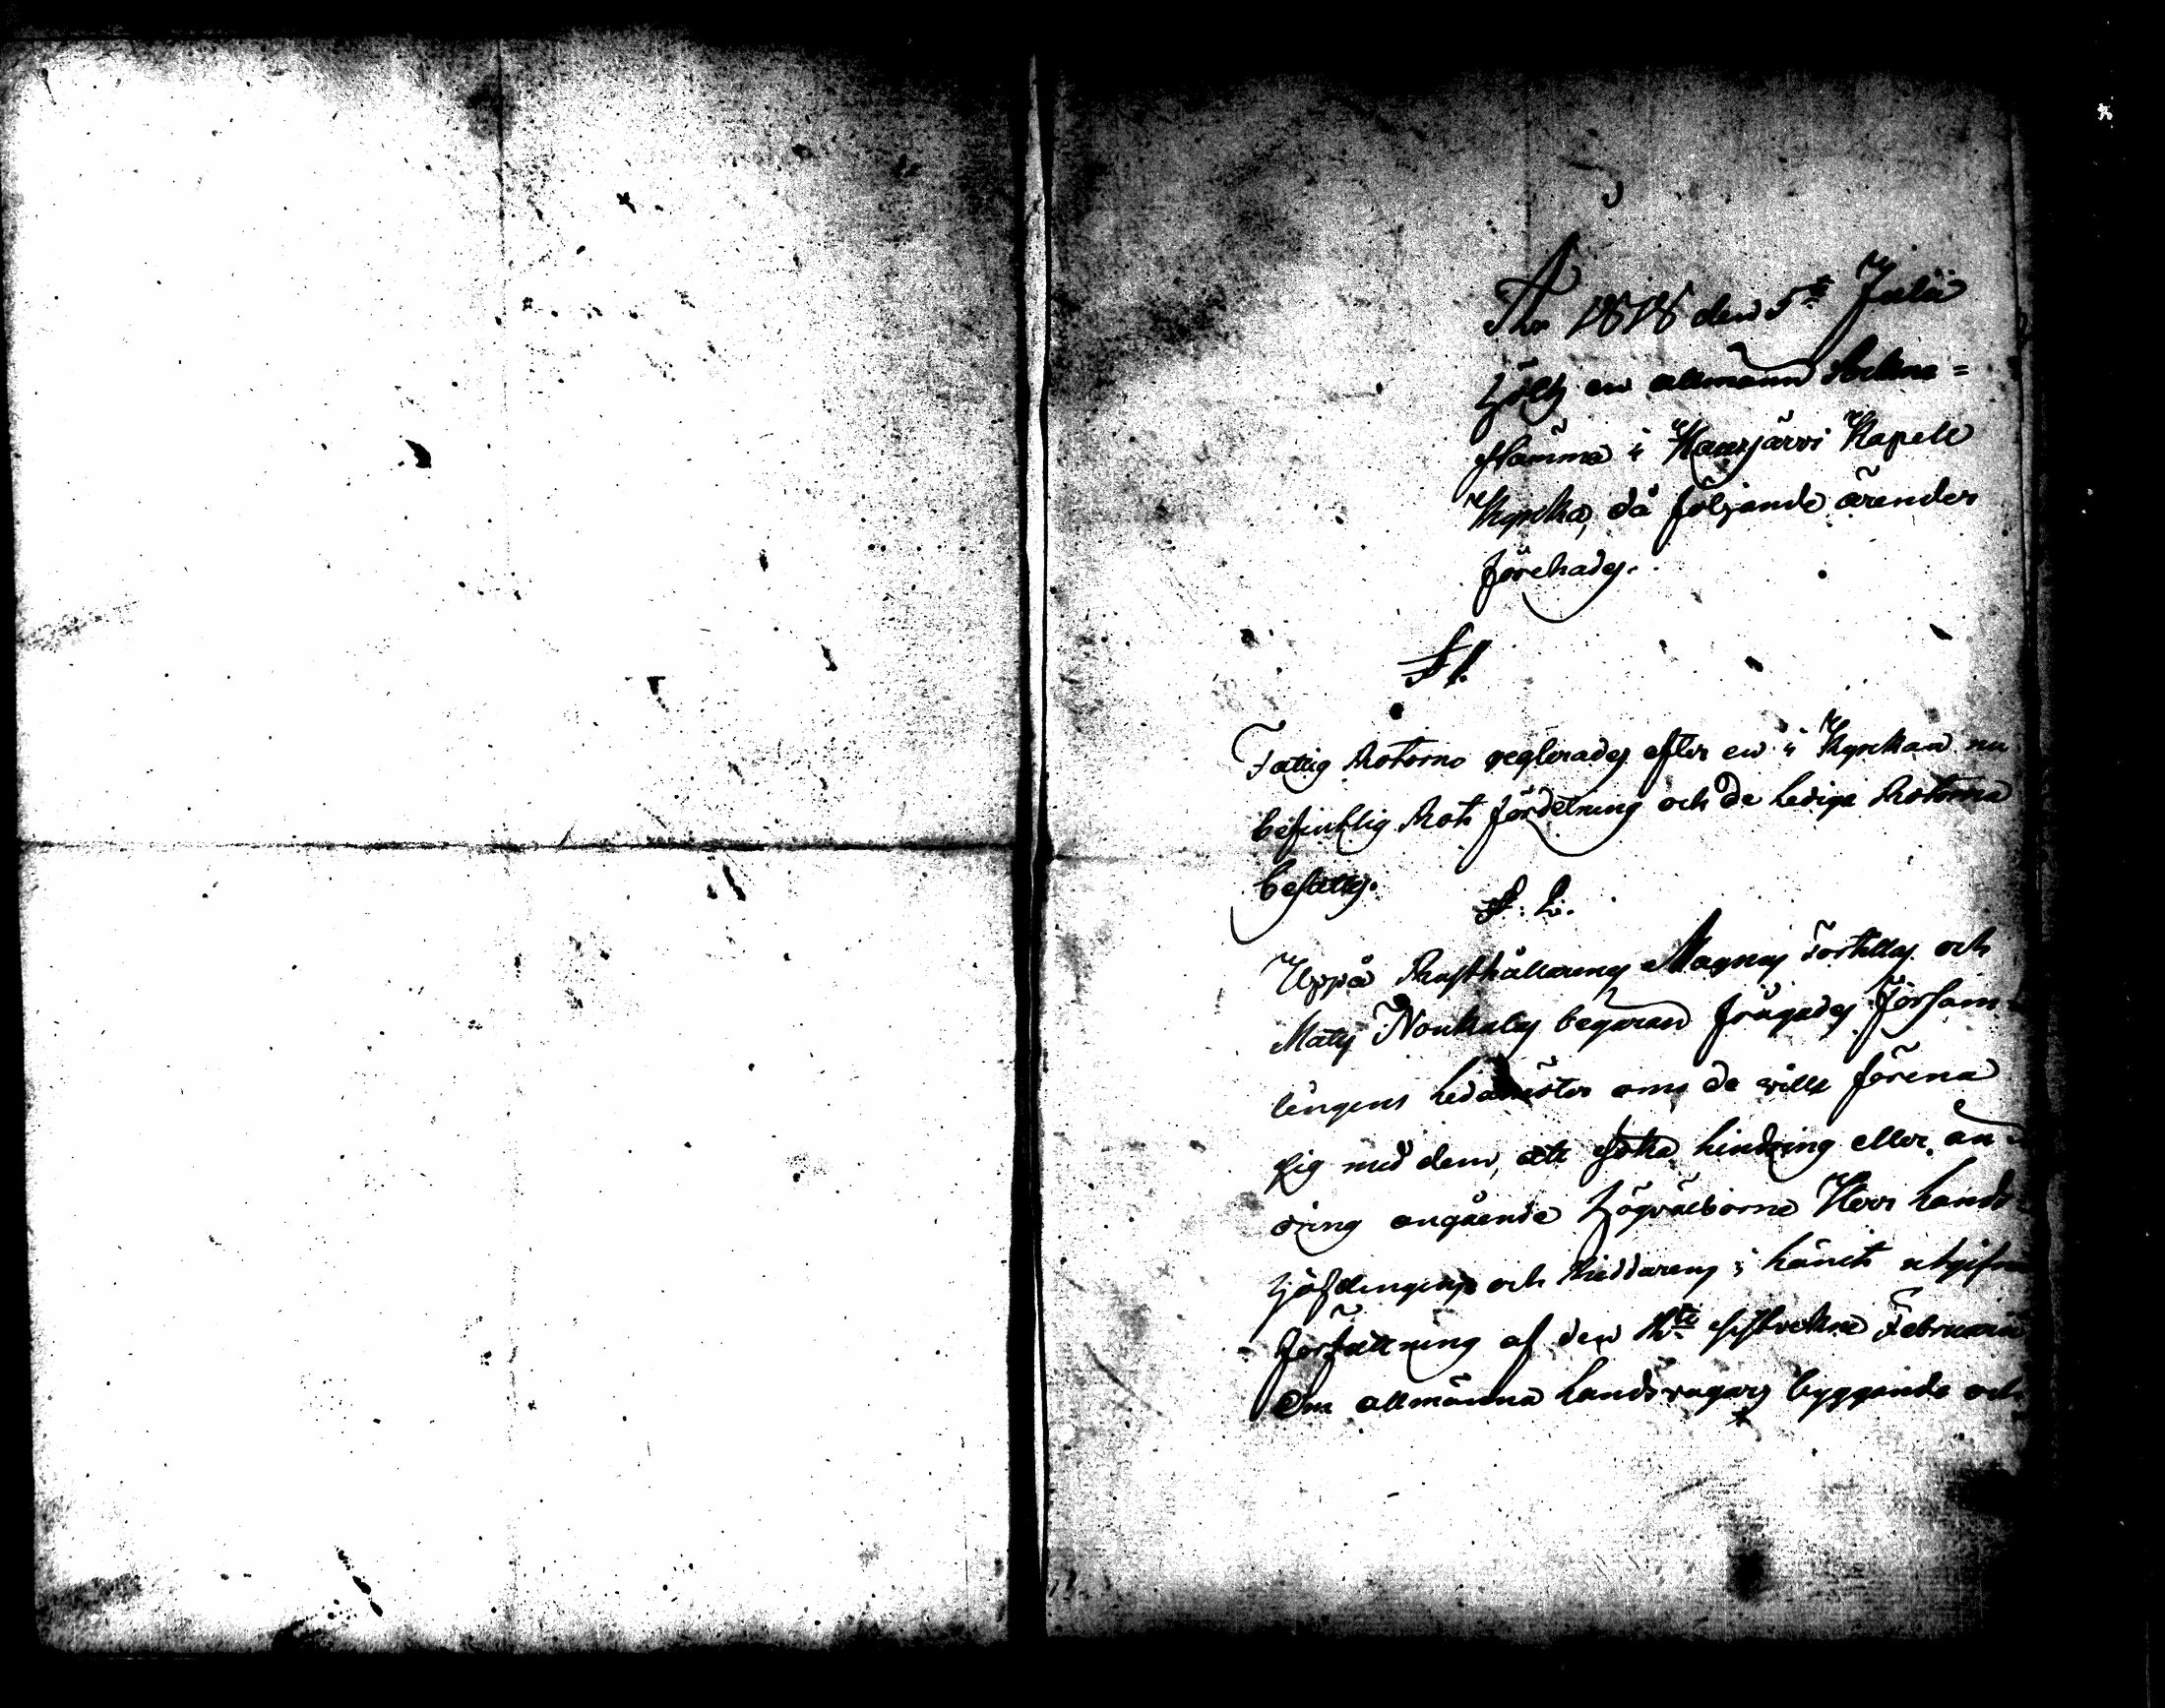 År 1818 den 5te Julii
hölts en allmänn Sockne=
stämma i Kauvjärvi Kapell
Kyrcka, då följande ärender
förehades.
§ 1.
Fattig Rotorne reglerades efter en i Kyrckan nu
befintlig Rote fördelning och de lediga Rotorna
besattes.
§. 2.
Uppå Rusthållarens Magnus Tortillas och
Mats Noukalas begäran frågades Försam-
lingens ledamöter om de wille förena
sig med dem, att söka hindring eller än-
dring angående Högvälborne Herr Lands
höfdingens och Riddarens i Länet utgifna
författning af den sistvekne Februarii
Om allmänna Landsvägars byggande och